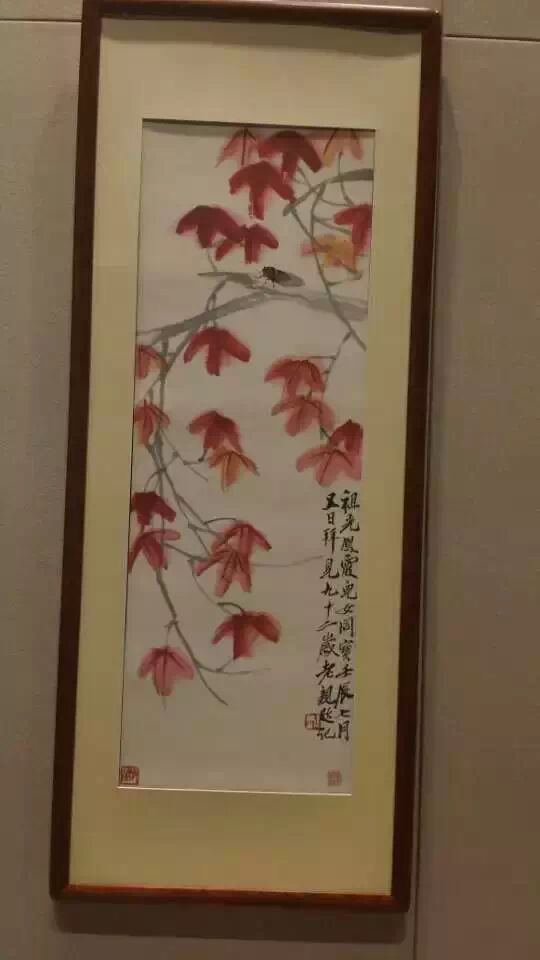 祖光鳳霞兒女同寶壬辰七月
五日拜見九十二歲老親題記